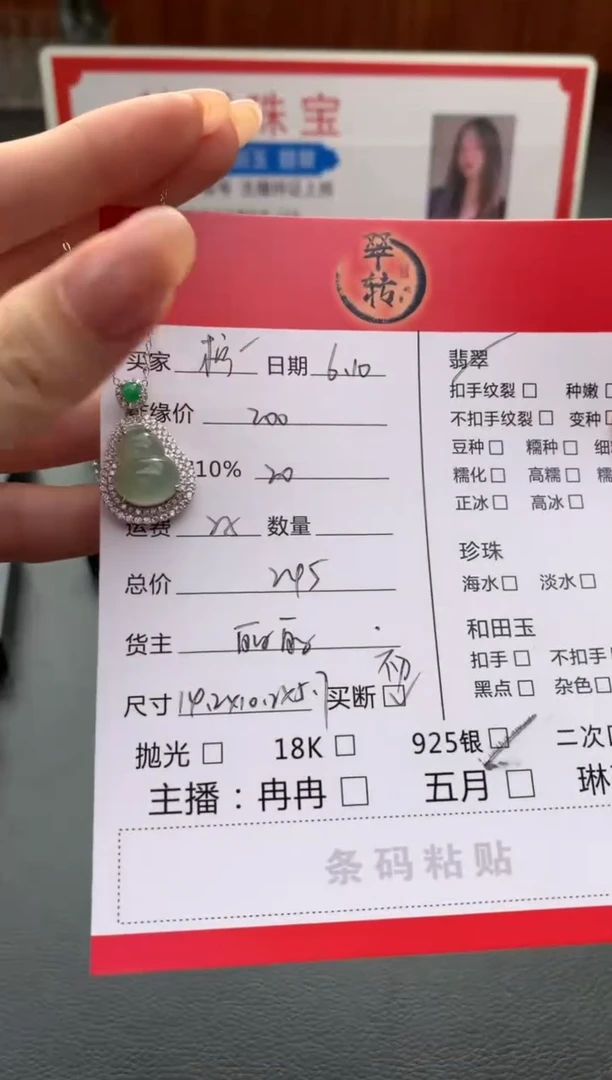 珠宝
翠
转
买家 日期 6.10
缘价 200
10% 20
运费 数量
总价 245
货主 丽丽
尺寸 14.2X10.2X5.7 买断 不
抛光 18K 925银 二次
主播：冉冉 五月 琳
条码粘贴
翡翠
扣手纹裂 种嫩
不扣手纹裂 变种
豆种 糯种 细
糯化 高糯 糯
正冰 高冰
珍珠
海水 淡水
和田玉
扣手 不扣手
黑点 杂色